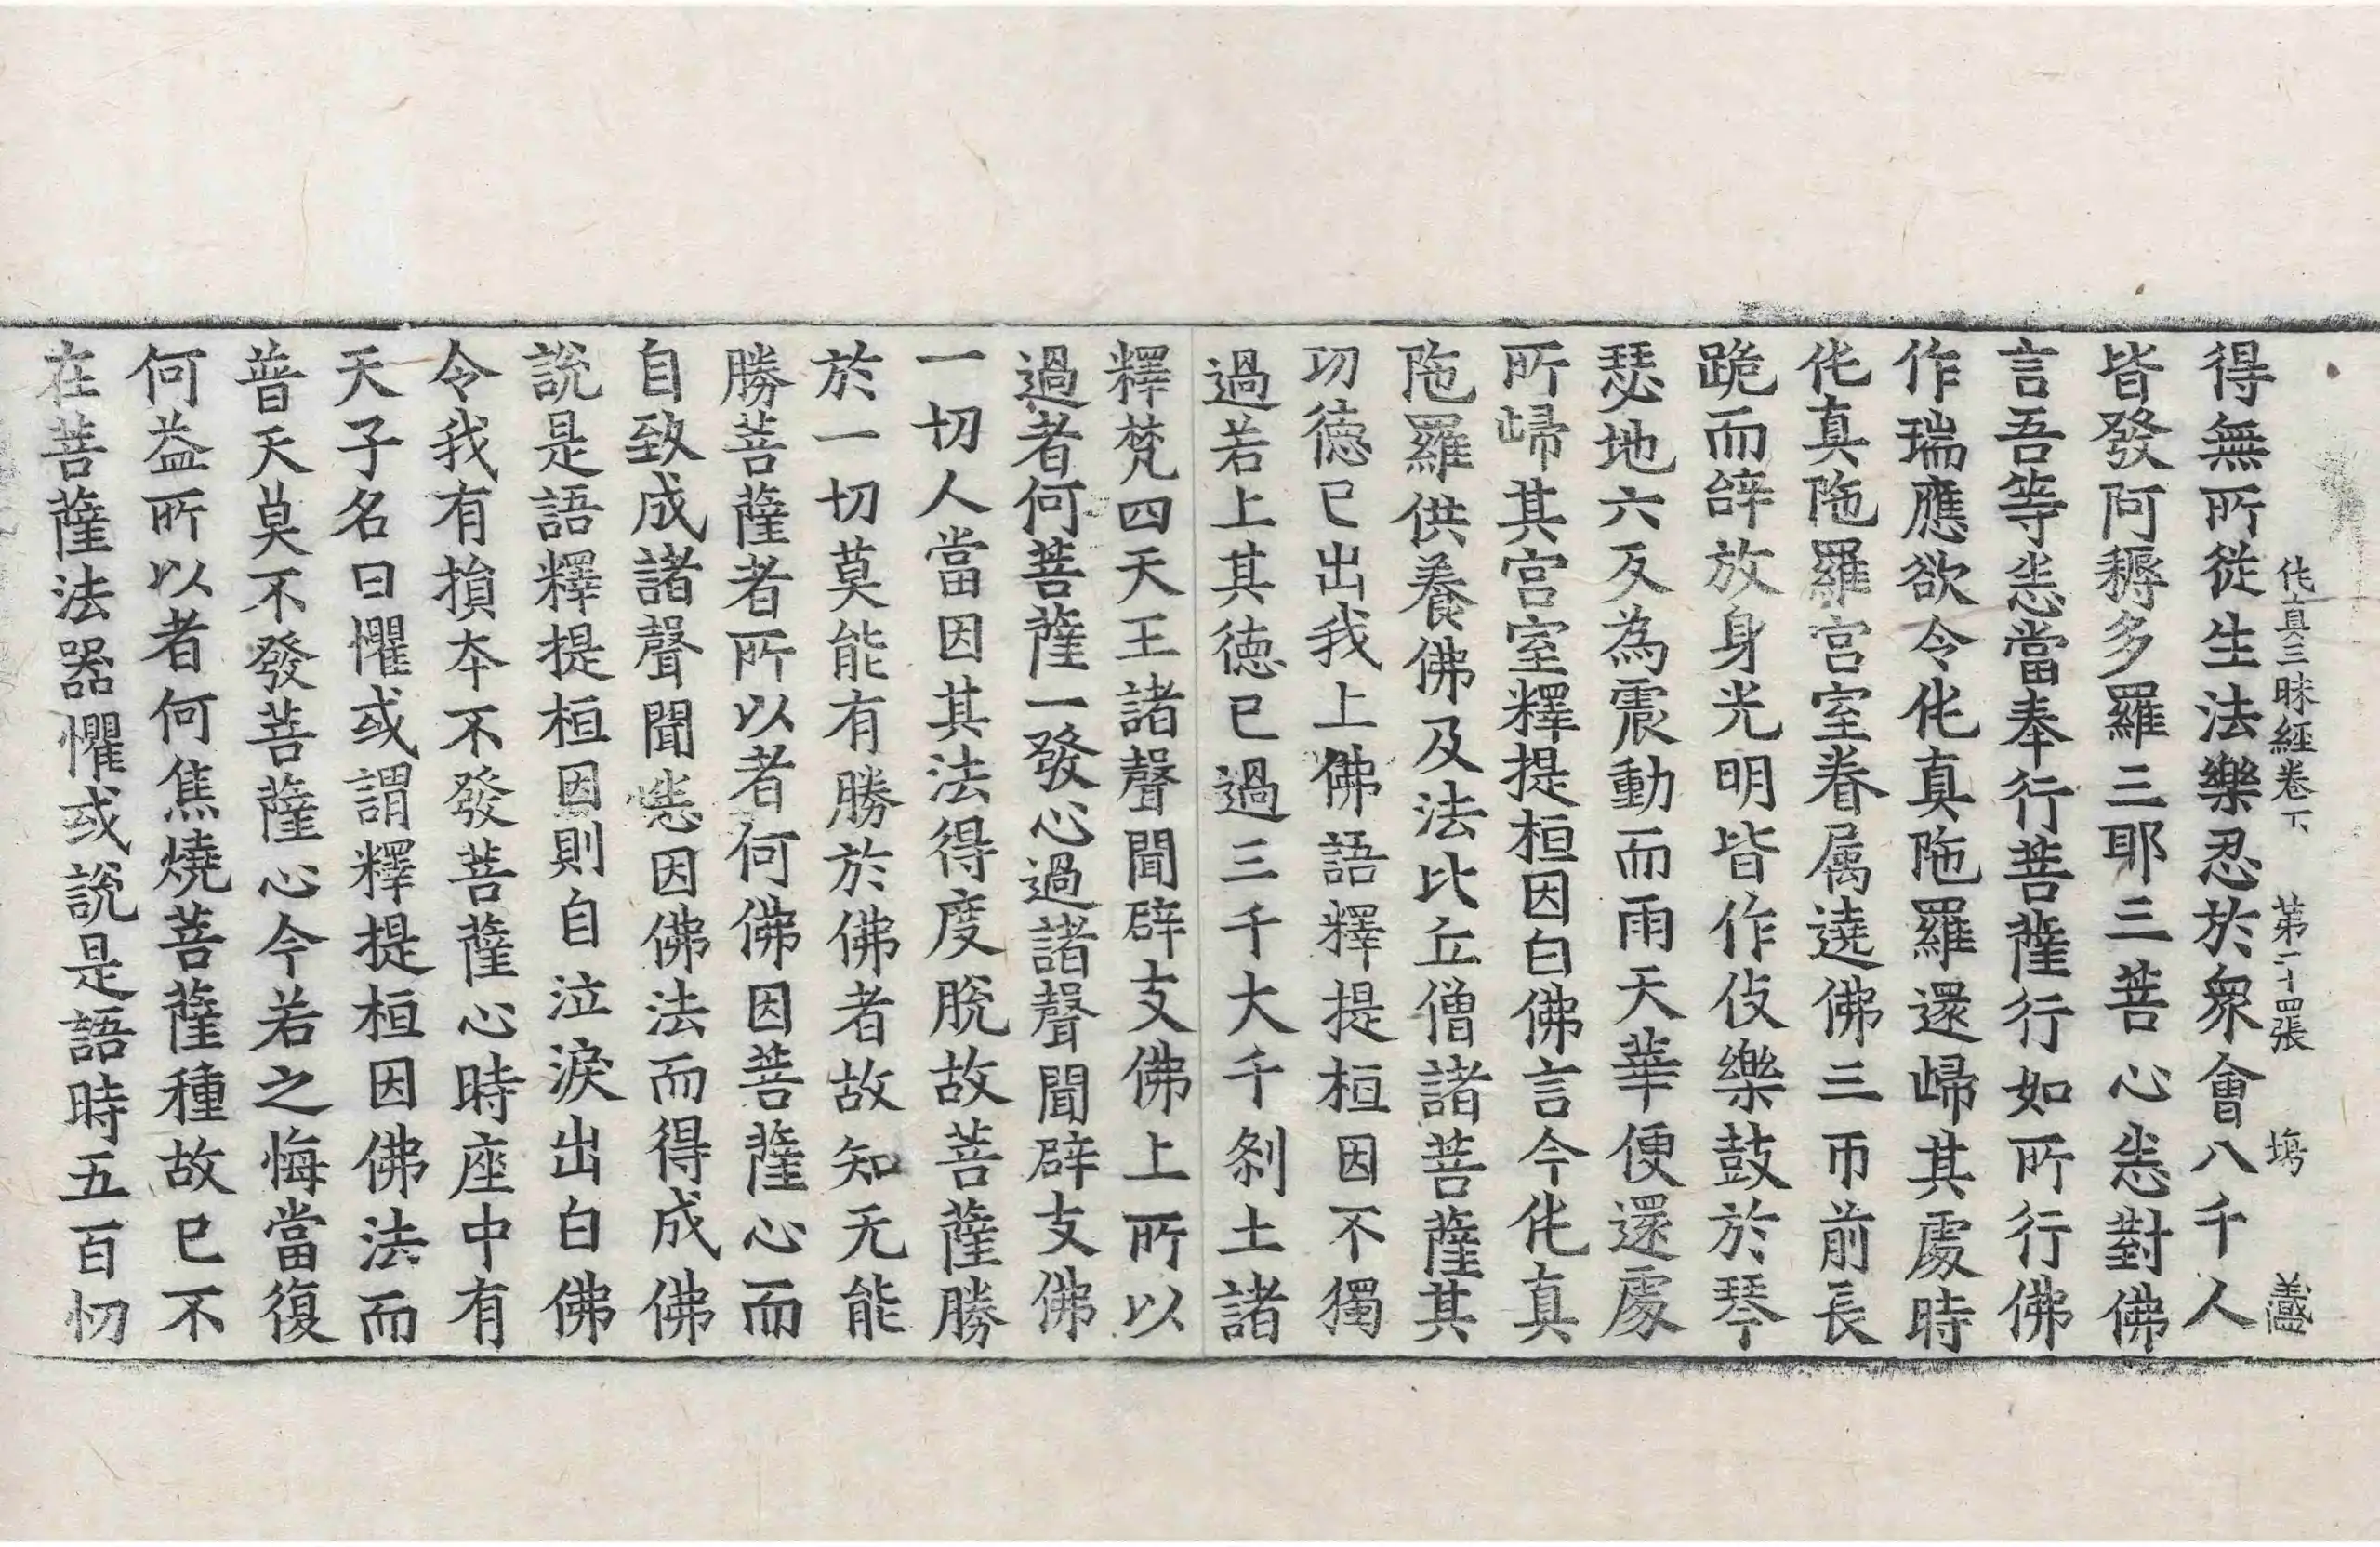 伅真三昧經卷下 第二十四張 塲 羲
得無所從生法樂忍於衆會八千人
皆發阿耨多羅三耶三菩心悉對佛
言吾等悉當奉行菩薩行如所行佛
作瑞應欲令伅真陁羅還歸其處時
伅真陁羅宫室眷属遶佛三帀前長
跪而辤放身光明皆作伎樂鼓於琴
瑟地六反為震動而雨天華便還處
所歸其宫室釋提桓因白佛言今伅真
陁羅供養佛及法比丘僧諸菩薩其
功德已出我上佛語釋提桓因不獨
過若上其德已過三千大千剎土諸
釋梵四天王諸聲聞辟支佛上所以
過者何菩薩一發心過諸聲聞辟支佛
一切人當因其法得度脫故菩薩勝
於一切莫能有勝於佛者故知无能
勝菩薩者所以者何佛因菩薩心而
自致成諸聲聞悉因佛法而得成佛
說是語釋提桓因則自泣淚出白佛
令我有損本不發菩薩心時座中有
天子名曰懼或謂釋提桓因佛法而
普天莫不發菩薩心今若之悔當復
何益所以者何焦燒菩薩種故已不
在菩薩法器懼或說是語時五百忉